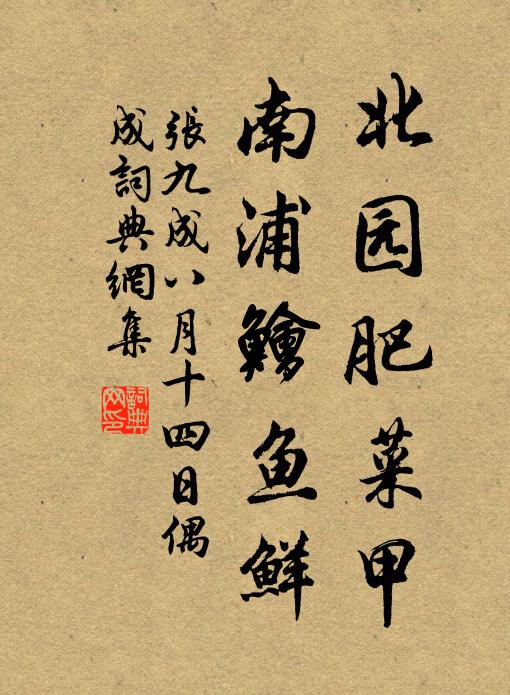 北园肥菜甲
南浦鱠鱼鮮
張九成八月十四日偶
成詞典網集
詞典网印